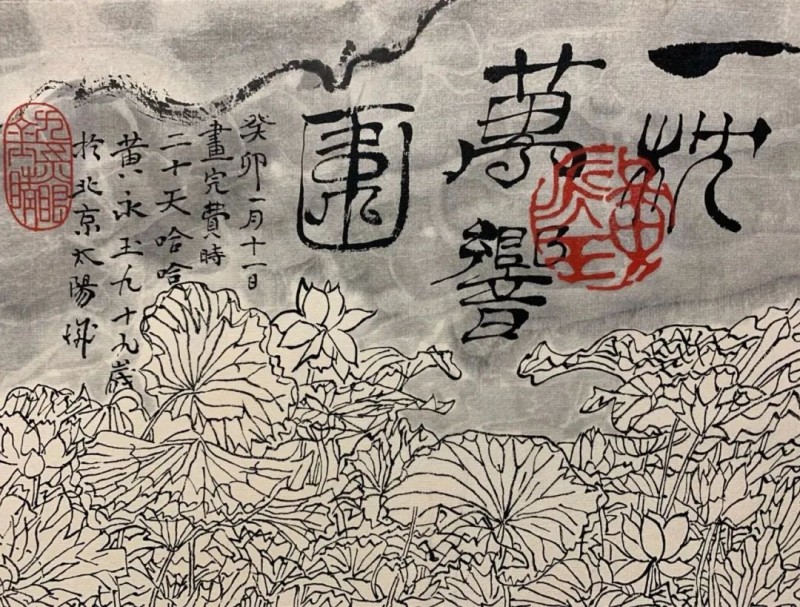 一枕
萬響
圖
癸卯一月十一日
畫完費時
二十天哈哈
黃永玉九十九歲
於北京太陽城